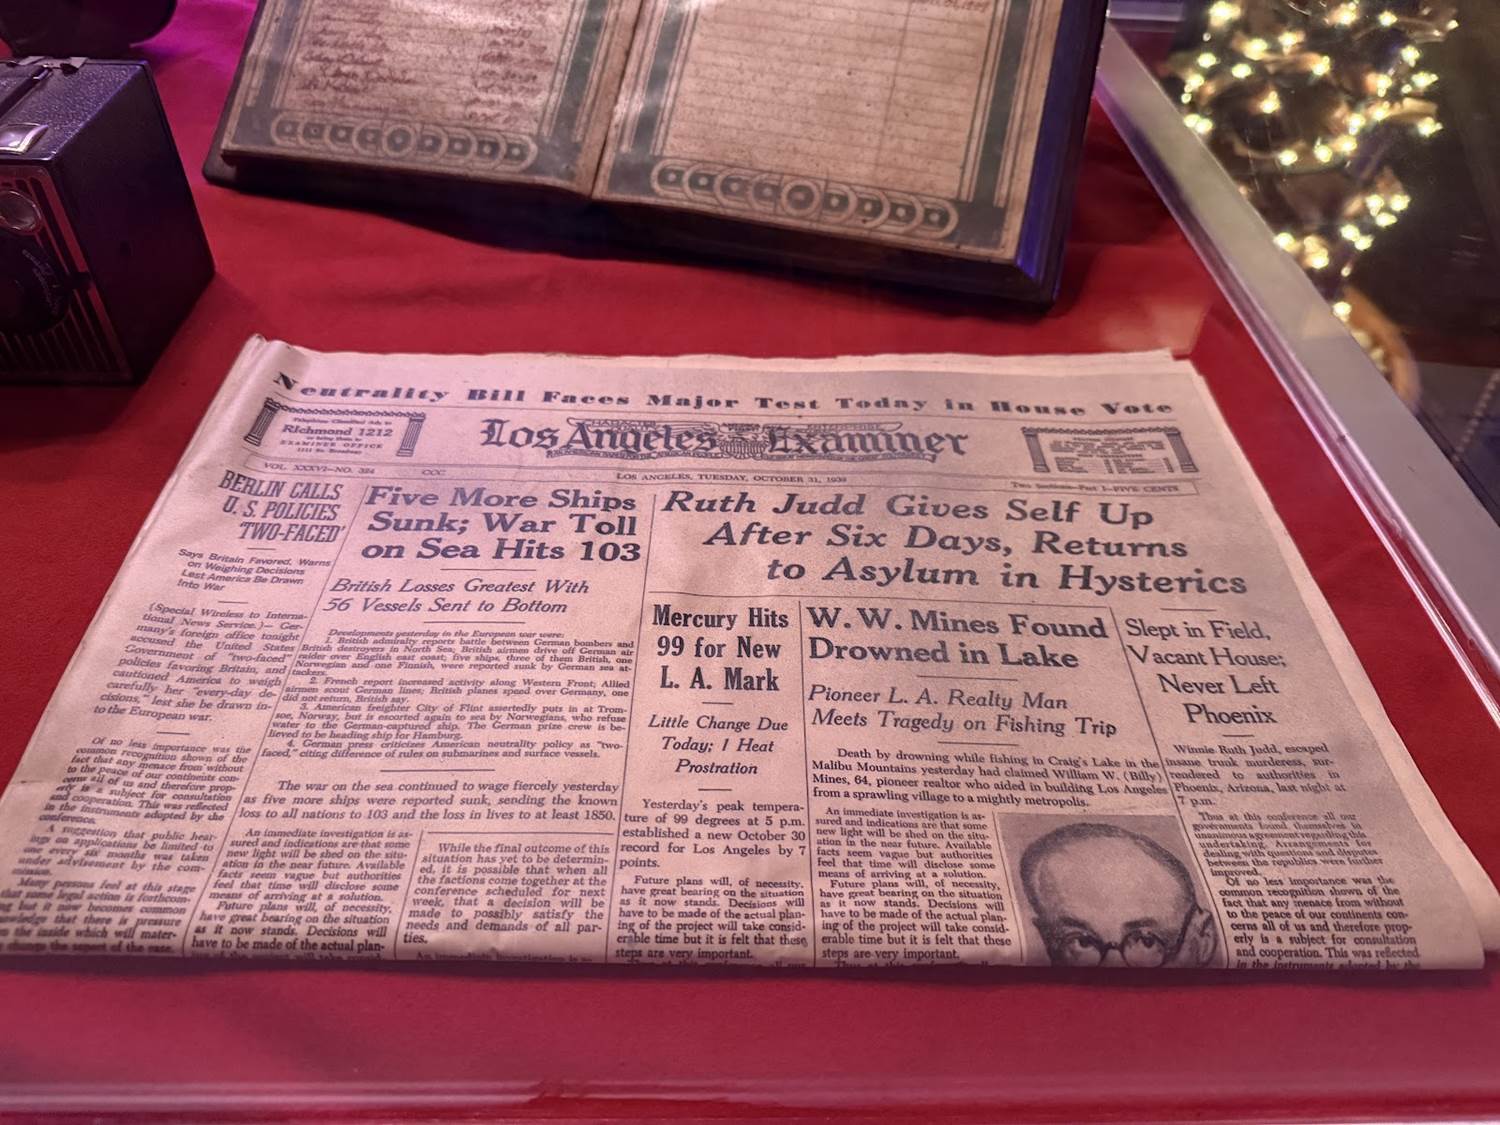 Neutrality Bill Faces Major Test Today in House Vote
Telephone Classified Ads to
Richmond 1212
or bring them to
EXAMINER OFFICE
1111 So. Broadway
Los Angeles Examiner
VOL. XXXVI—NO. 324
CCC
LOS ANGELES, TUESDAY, OCTOBER 31, 1939
Two Sections—Part I—FIVE CENTS
BERLIN CALLS
U. S. POLICIES
'TWO-FACED'
Says Britain Favored, Warns
on Weighing Decisions
Lest America Be Drawn
Into War
(Special Wireless to Interna-
tional News Service.)— Ger-
many's foreign office tonight
accused the United States
Government of "two-faced"
policies favoring Britain, and
cautioned America to weigh
carefully her "every-day de-
cisions," lest she be drawn in-
to the European war.
Of no less importance was the
common recognition shown of the
fact that any menace from without
to the peace of our continents con-
cerns all of us and therefore prop-
erly is a subject for consultation
and cooperation. This was reflected
in the instruments adopted by the
conference.
A suggestion that public hear-
ings on applications be limited to
one every six months was taken
under advisement by the com-
mission.
Many persons feel at this stage
that some legal action is forthcom-
ing but it now becomes common
knowledge that there is pressure
on the inside which will mater-
change the aspect of the case.
Five More Ships
Sunk; War Toll
on Sea Hits 103
British Losses Greatest With
56 Vessels Sent to Bottom
Developments yesterday in the European war were:
1. British admiralty reports battle between German bombers and
British destroyers in North Sea; British airmen drive off German air
raider over English east coast; five ships, three of them British, one
Norwegian and one Finnish, were reported sunk by German sea at-
tackers.
2. French report increased activity along Western Front; Allied
airmen scout German lines; British planes speed over Germany, one
did not return, British say.
3. American freighter City of Flint assertedly puts in at Trom-
soe, Norway, but is escorted again to sea by Norwegians, who refuse
water to the German-captured ship. The German prize crew is be-
lieved to be heading ship for Hamburg.
4. German press criticizes American neutrality policy as "two-
faced," citing difference of rules on submarines and surface vessels.
The war on the sea continued to wage fiercely yesterday
as five more ships were reported sunk, sending the known
loss to all nations to 103 and the loss in lives to at least 1850.
An immediate investigation is as-
sured and indications are that some
new light will be shed on the situ-
ation in the near future. Available
facts seem vague but authorities
feel that time will disclose some
means of arriving at a solution.
Future plans will, of necessity,
have great bearing on the situation
as it now stands. Decisions will
have to be made of the actual plan-
ing of the project will take consid-
While the final outcome of this
situation has yet to be determin-
ed, it is possible that when all
the factions come together at the
conference scheduled for next
week, that a decision will be
made to possibly satisfy the
needs and demands of all par-
ties.
An immediate investigation is as-
Ruth Judd Gives Self Up
After Six Days, Returns
to Asylum in Hysterics
Mercury Hits
99 for New
L. A. Mark
Little Change Due
Today; 1 Heat
Prostration
Yesterday's peak tempera-
ture of 99 degrees at 5 p.m.
established a new October 30
record for Los Angeles by 7
points.
Future plans will, of necessity,
have great bearing on the situation
as it now stands. Decisions will
have to be made of the actual plan-
ing of the project will take consid-
erable time but it is felt that these
steps are very important.
W. W. Mines Found
Drowned in Lake
Pioneer L. A. Realty Man
Meets Tragedy on Fishing Trip
Death by drowning while fishing in Craig's Lake in the
Malibu Mountains yesterday had claimed William W. (Billy)
Mines, 64, pioneer realtor who aided in building Los Angeles
from a sprawling village to a mightly metropolis.
An immediate investigation is as-
sured and indications are that some
new light will be shed on the situ-
ation in the near future. Available
facts seem vague but authorities
feel that time will disclose some
means of arriving at a solution.
Future plans will, of necessity,
have great bearing on the situation
as it now stands. Decisions will
have to be made of the actual plan-
ing of the project will take consid-
erable time but it is felt that these
steps are very important.
Slept in Field,
Vacant House;
Never Left
Phoenix
Winnie Ruth Judd, escaped
insane trunk murderess, sur-
rendered to authorities in
Phoenix, Arizona, last night at
7 p.m.
Thus at this conference all our
governments found themselves in
unanimous agreement regarding this
undertaking. Arrangements for
dealing with questions and disputes
between the republics were further
improved.
Of no less importance was the
common recognition shown of the
fact that any menace from without
to the peace of our continents con-
cerns all of us and therefore prop-
erly is a subject for consultation
and cooperation. This was reflected
in the instruments adopted by the